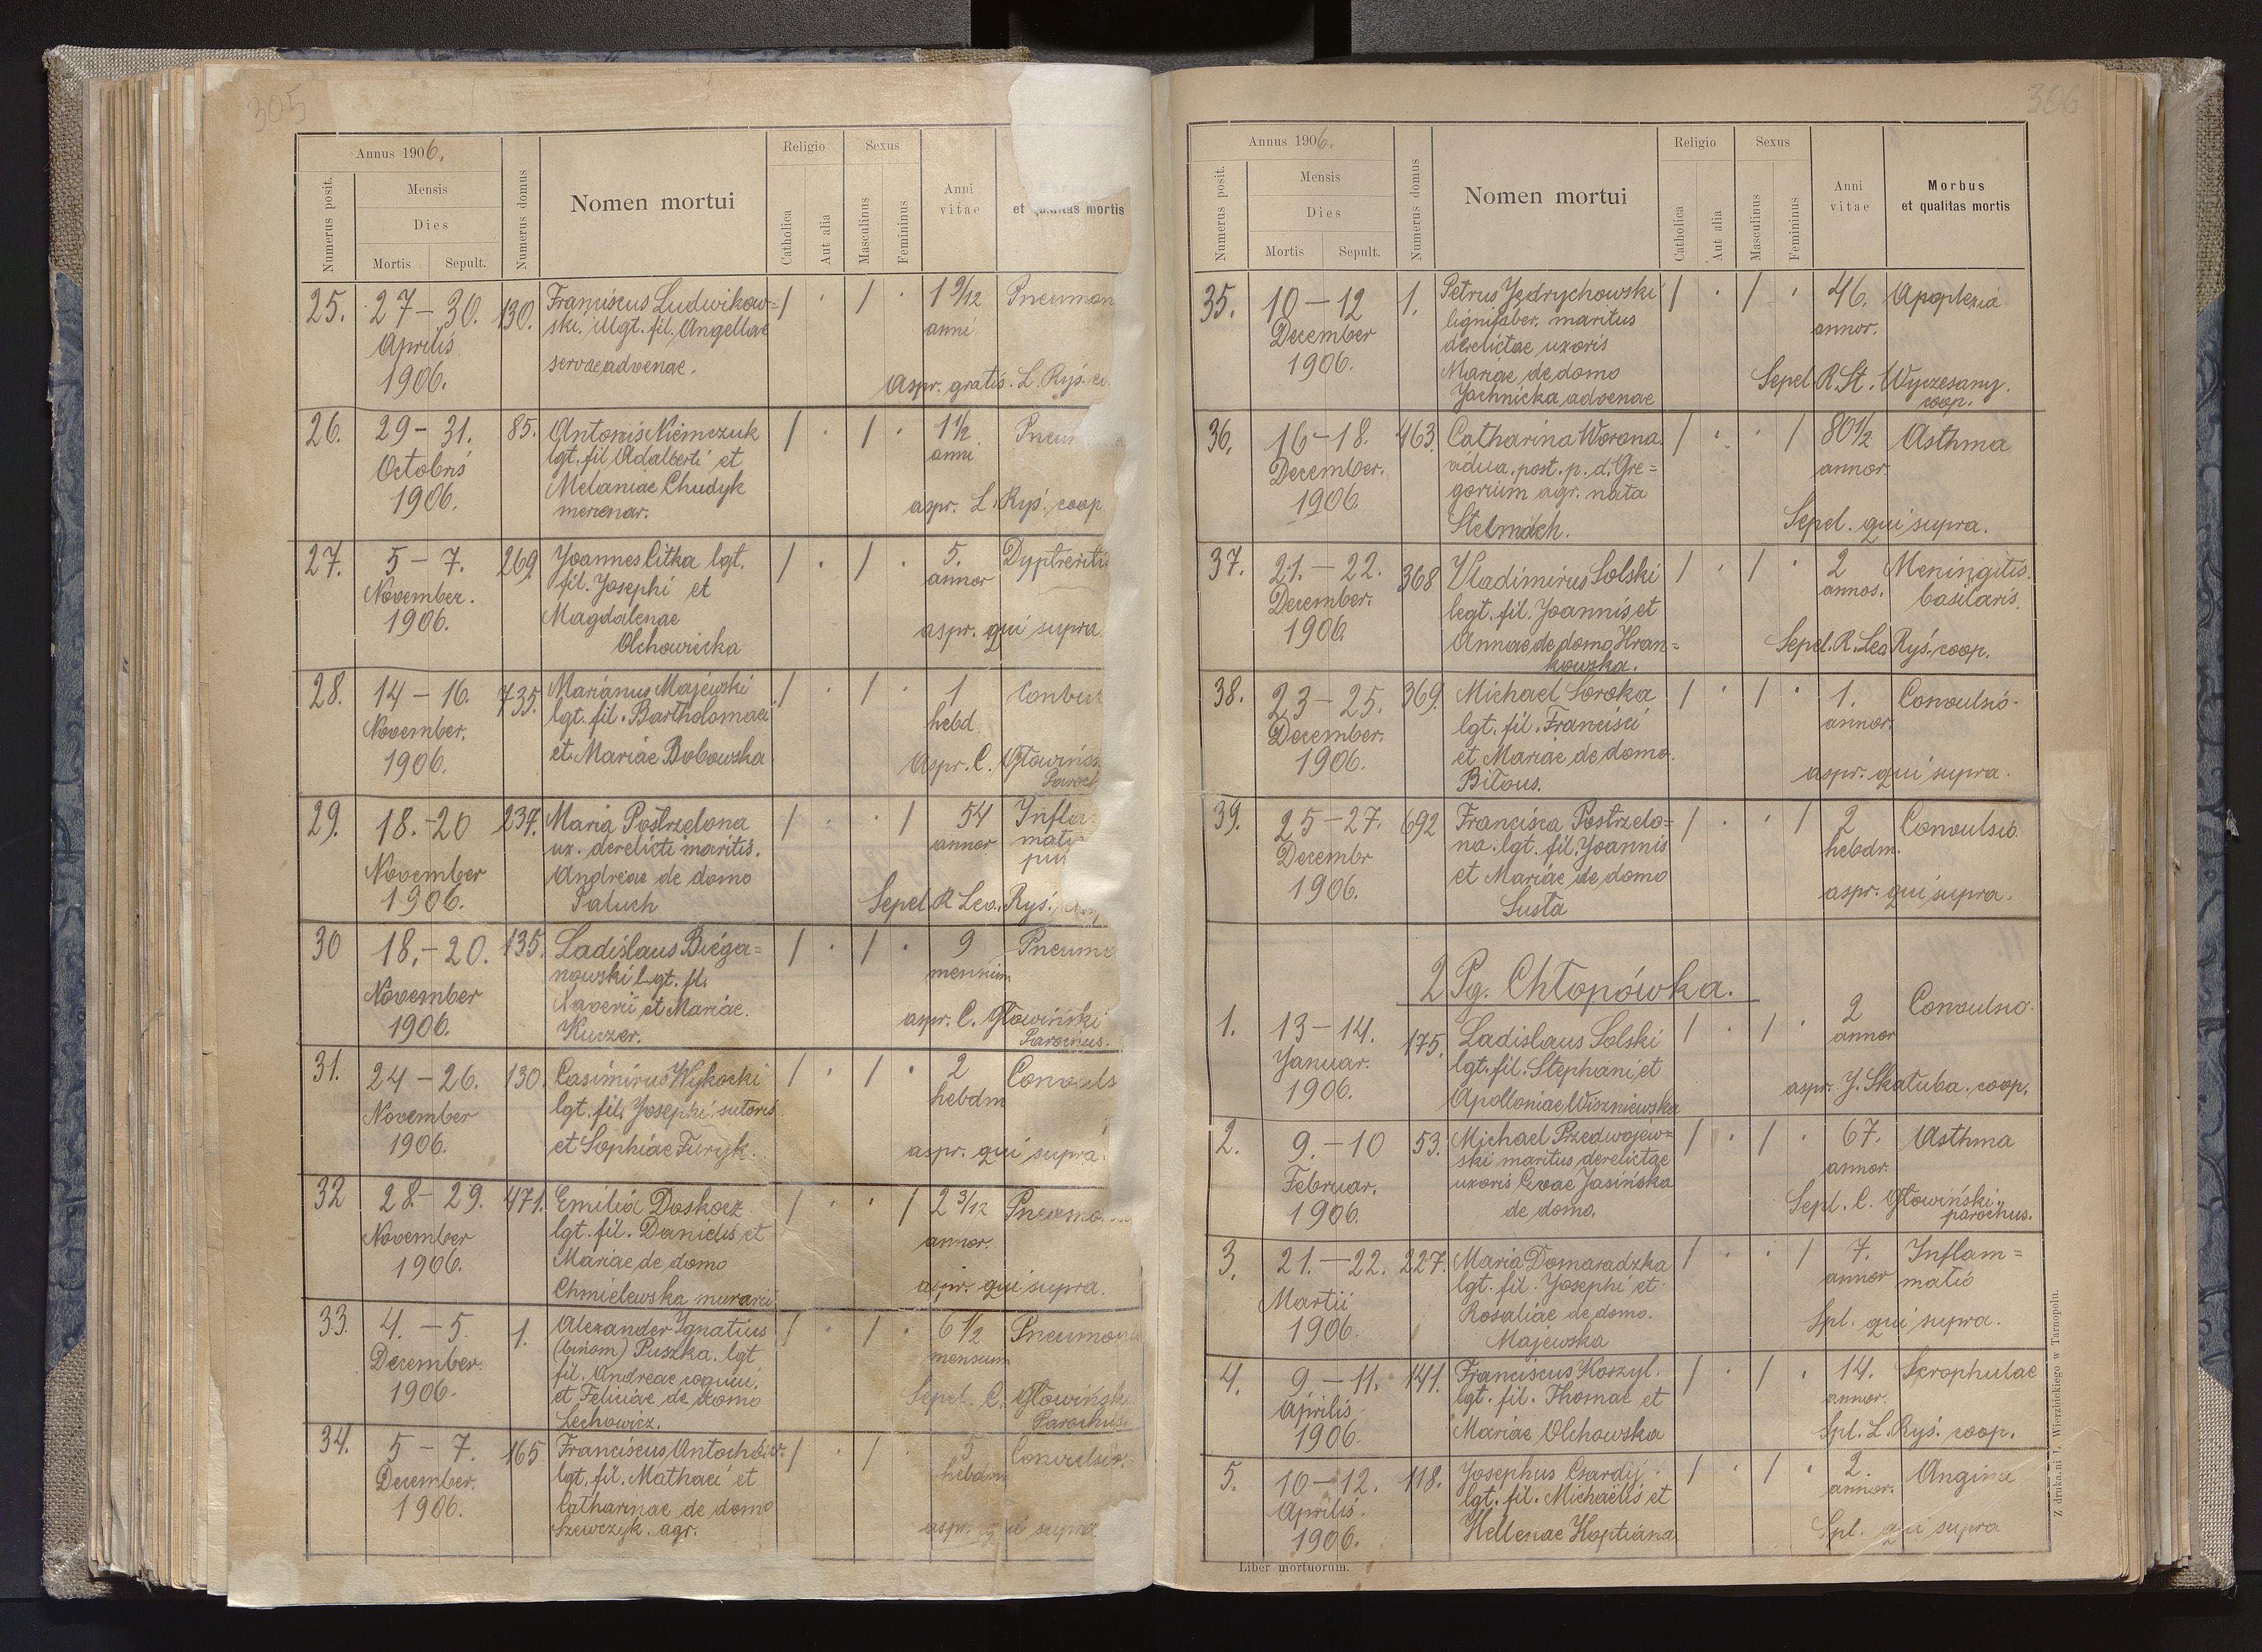 305
Annus 1906.
Numerus posit.
Mensis
Dies
Mortis
Sepult.
Numerus domus
Nomen mortui
Religio
Catholica
Aut alia
Sexus
Masculinus
Femininus
Anni
vitae
et qualitas mortis
25. 27 – 30. 130. Franciscus Ludwikow= / · / · 1 9/12 Pneumon
Aprilis ski. illgt. fil. Angellae anni
1906. servae advenae.
Aspr. gratis. L. Ryś. co
26. 29 – 31. 85. Antonis Niemczuk / · / · 1 1/2 Pneum
Octobris lgt. fil. Adalberti et anni
1906. Melaniae Chudyk
mercenar. aspr. L. Ryś. coop
27. 5 – 7. 269. Joannes Citka lgt. / · / · 5. Dyptreriti
November. fil. Josephi et annor
1906. Magdalenae
Olchowiecka aspr. qui supra
28. 14 – 16. 735. Marianus Majewski / · / · 1 Convul
November. lgt. fil. Bartholomaei hebd.
1906. et Mariae Bobowska Aspr. C. Głowińs
Paroch
29. 18. – 20 237. Maria Postrzelona / · · / 54 Infla=
November ux. derelicti maritis. annor mati
1906. Andreae de domo pul
Paluch Sepel. R Leo. Ryś.
30 18. – 20. 135. Ladislaus Biega= / · / · 9 Pneumo
November nowski lgt. fl. mensium
1906. Xaverii et Mariae.
Kuczer. aspr. C. Głowiński
Parochus.
31. 24 – 26. 130. Casimirus Wykocki / · / · 2 Convuls
November lgt. fil. Josephi sutoris hebdm
1906. et Sophiae Furyk. aspr. qui supra
32 28. – 29. 471. Emilia Doskocz / · · / 2 3/12 Pneumo
November lgt. fil. Danielis et annor.
1906. Mariae de domo
Chmielewska murarii aspr. qui supra.
33. 4. – 5. 1. Alexander Ignatius / · / · 6 1/2 Pneumoni
December. (binom) Puszka. lgt mensium
1906. fil. Andreae coquui.
et Feliciae de domo Sepel. C. Głowińsk
Lechowicz. Parochus.
34. 5 – 7. 165. Franciscus Antochów. / · / 5 Convulsio.
December. lgt. fil. Mathaei et hebdm
1906. Catharinae de domo
Szewczyk. agr. aspr. qui supra
306
Annus 1906.
Numerus posit.
Mensis
Dies
Mortis
Sepult.
Numerus domus
Nomen mortui
Religio
Catholica
Aut alia
Sexus
Masculinus
Femininus
Anni
vitae
Morbus
et qualitas mortis
35. 10 – 12 1. Petrus Jędrychowski / · / · 46. Apoplexia
December lignifaber. maritus annor.
1906. derelictae uxoris
Mariae de domo Sepel R. St. Wyczesany.
Jachnicka advenae coop.
36. 16 – 18. 463. Catharina Worona. / · · / 80 1/2 Asthma
December. vidua. post. p. d. Gre= annor.
1906. gorium agr. nata
Stelmach. Sepel. qui supra.
37. 21. – 22. 368 Vladimirus Solski / · / · 2 Meningitis.
December. legt. fil. Joannis et annos. basilaris.
1906. Annae de domo Hran=
kowska. Sepel. R. Leo Ryś. coop.
38. 23 – 25. 369. Michael Soroka / · / · 1. Convulsio
December. lgt. fil. Francisci annor.
1906. et Mariae de domo. aspr. qui supra.
Biłous.
39. 25 – 27. 692 Francisca Postrzelo= / · · / 2 Convulsio
Decembr na. lgt. fil. Joannis hebdm.
1906. et Mariae de domo aspr. qui supra.
Susta
2 Pg. Chłopówka.
1. 13 – 14. 175. Ladislaus Solski / · / · 2 Convulsio.
Januar. lgt. fil. Stephani et annor
1906. Apolloniae Wiszniewska aspr. J. Skałuba. coop.
2. 9. – 10 53. Michael Przedwojew= / · / · 67. Asthma
Februar. ski maritus derelictae annor.
1906. uxoris Evae Jasińska Sepl. C. Głowiński
de domo. parochus.
3. 21. – 22. 227. Maria Domaradzka / · · / 7. Inflam=
Martii lgt. fil. Josephi et annor matio
1906. Rosaliae de domo. Spl. qui supra.
Majewska
4. 9 – 11. 141. Franciscus Korzyl. / · / · 14. Scrophulae
Aprilis lgt. fil. Thomae et annor.
1906. Mariae Olchowska Spl. L. Ryś. coop.
5. 10 – 12. 118. Josephus Csardij. / · / · 2. Angina
Aprilis. lgt. fil. Michaelis et annor.
1906. Hellenae Koptiana Spl. qui supra
Liber mortuorum.
Z drukarni L. Wierzbickiego w Tarnopolu.